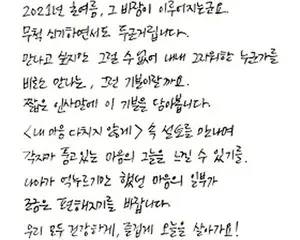 2021년 초여름, 그 바람이 이루어지는군요.
무척 신기하면서도 두근거립니다.
만나고 싶지만 그럴 수 없어 내내 그리워한 누군가를
비로소 만나는, 그런 기분이랄까요.
짧은 인사말에 이 기분을 담아봅니다.
<내 마음 다치지 않게> 속 설토를 만나며
각자가 품고있는 마음의 그늘을 느낄 수 있기를.
나아가 억누르기만 했던 마음의 일부가
조금은 편해지기를 바랍니다.
우리 모두 건강하게, 즐겁게 오늘을 살아가요!